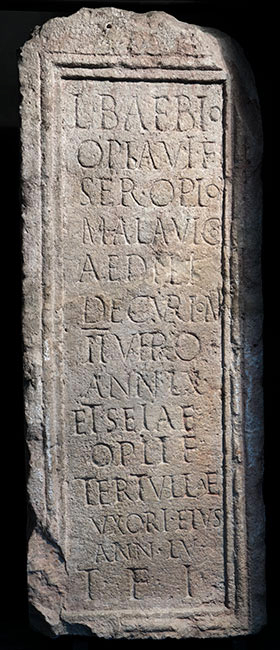 L·BAEBIO
OPTAVI F
SER·OPIO
MALAVIC
AEDILI
DECVRIN
IIVIRO
ANN·LX
ET SEIAE
OPLI F
TERTVLL·E
VXORI·EIVS
ANN·LV
T·F·I